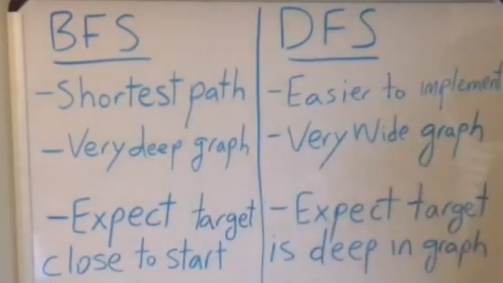 BFS
-Shortest path
-Very deep graph
-Expect target
close to start
DFS
-Easier to implement
-Very Wide graph
-Expect target
is deep in graph